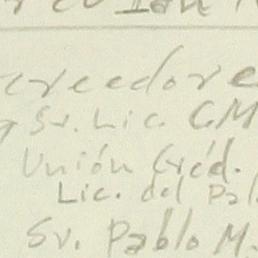 creedore
Sr. Lic. CM
Unión Créd.
Lic. del Pal
Sr. Pablo M.